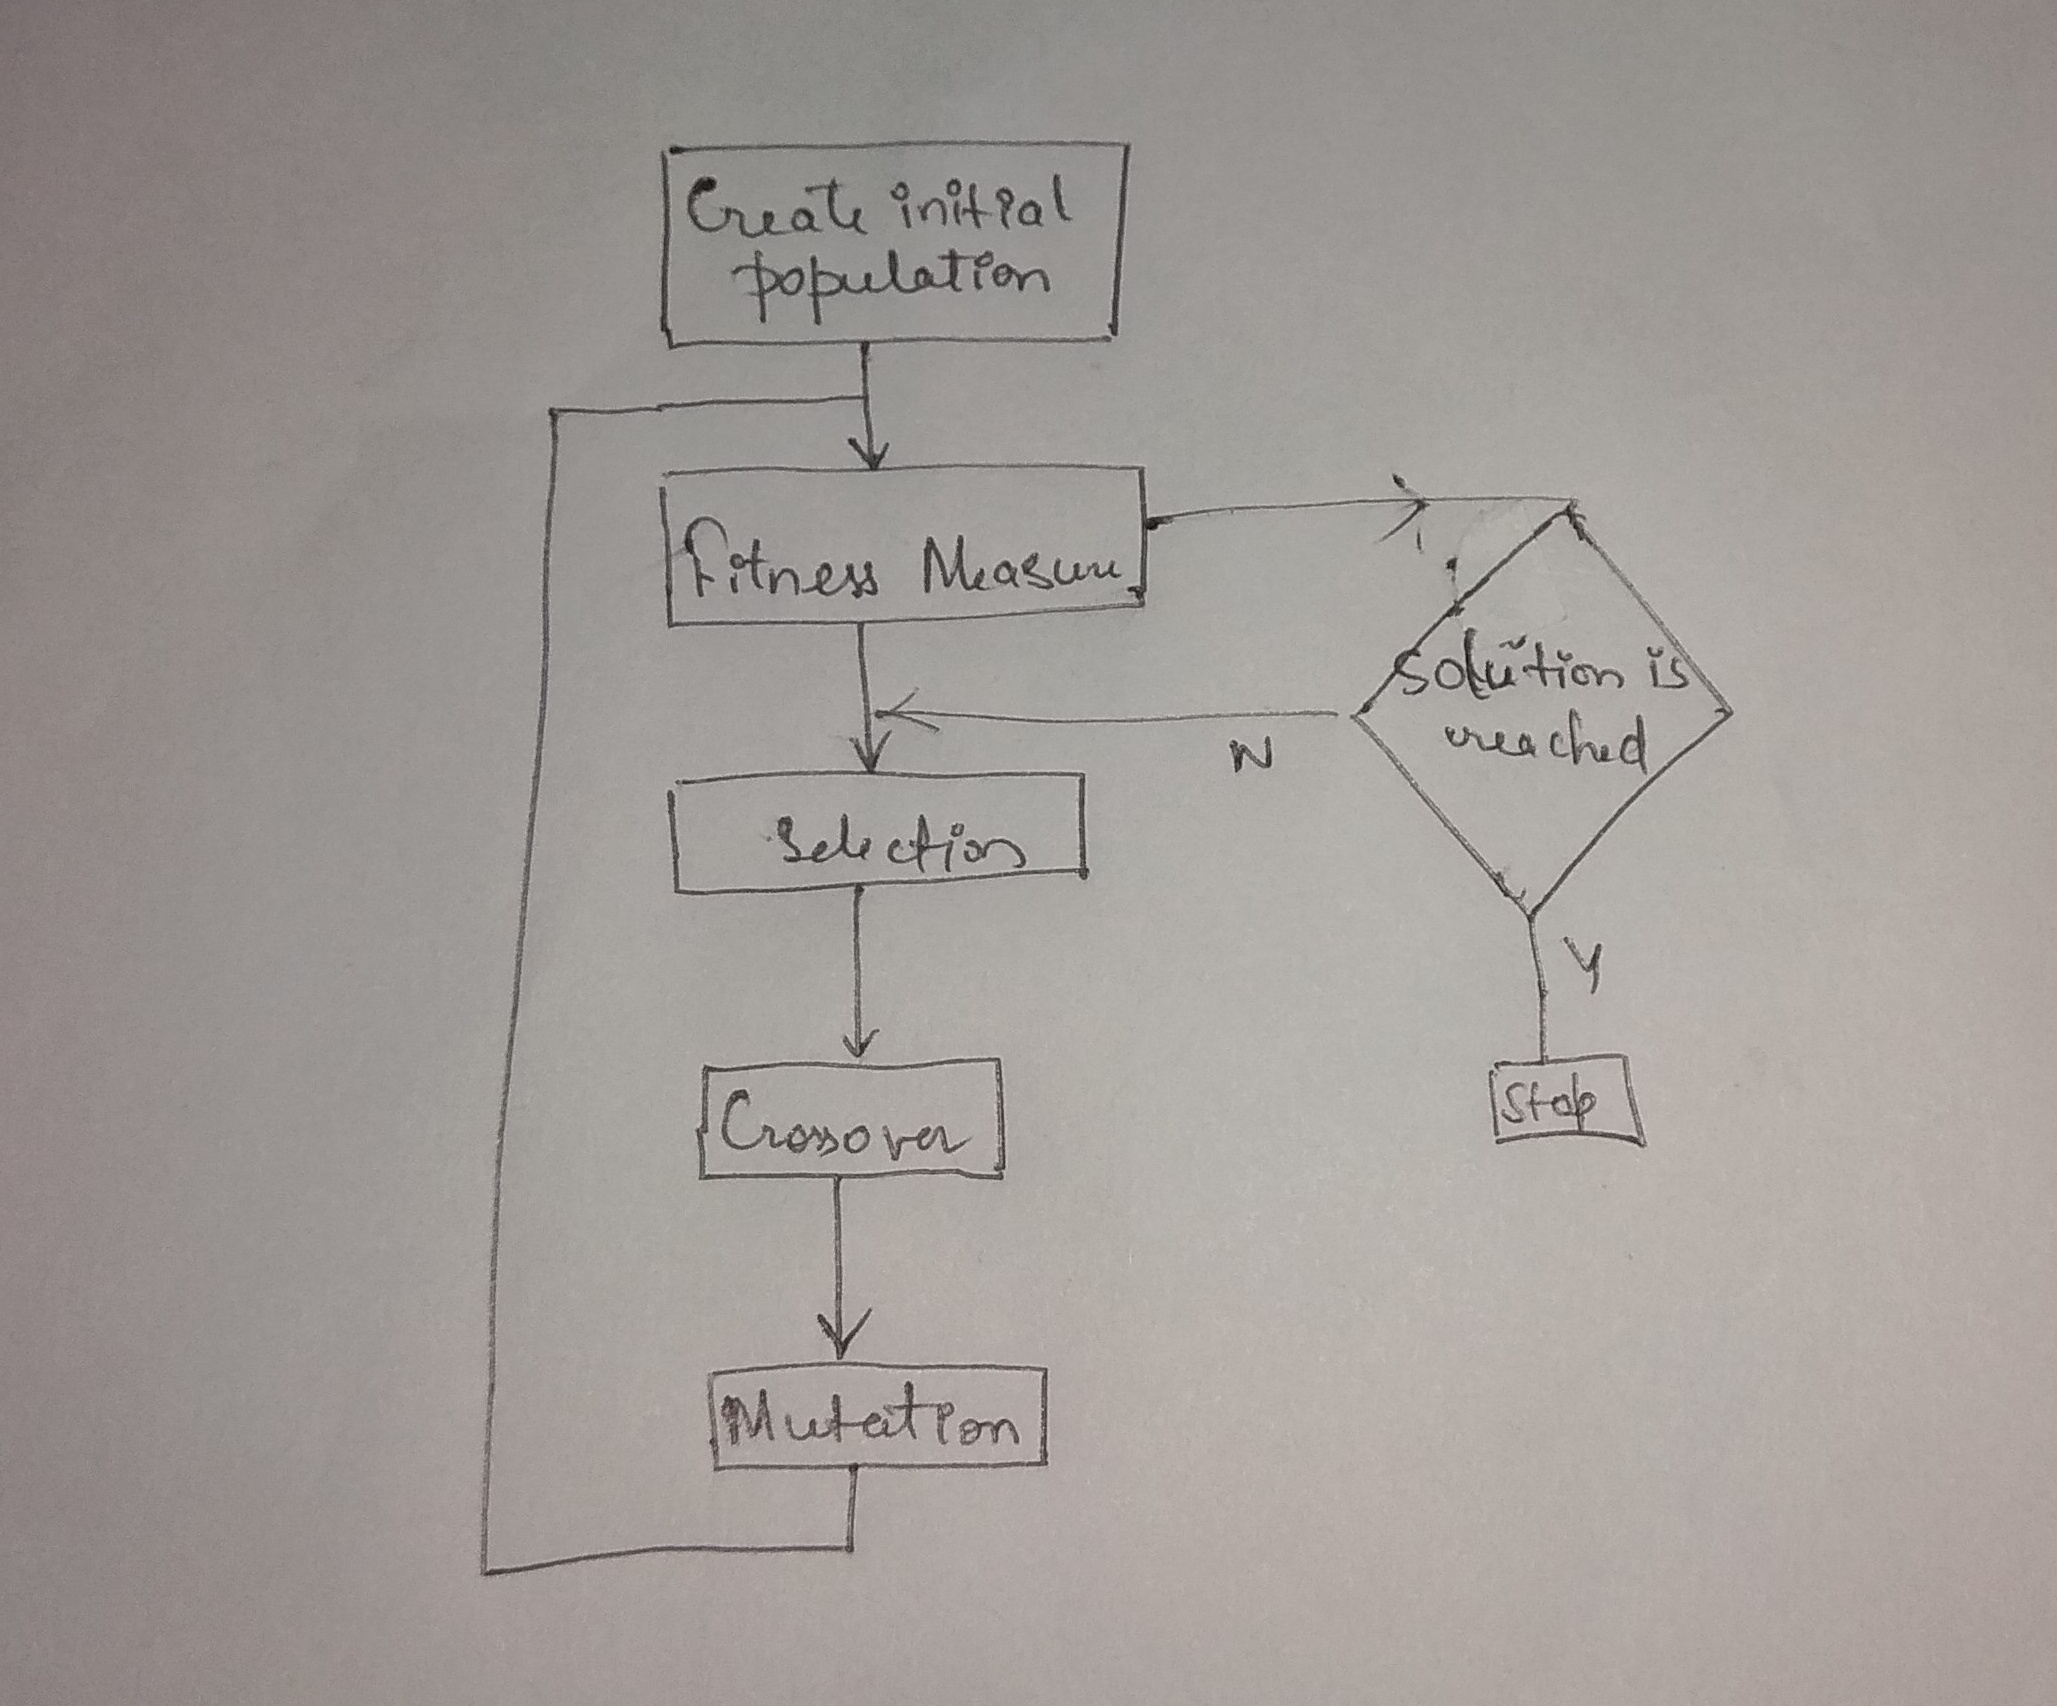 Create initial
population
Fitness Measure
Solution is
reached
N
Selection
Y
Stop
Crossover
Mutation